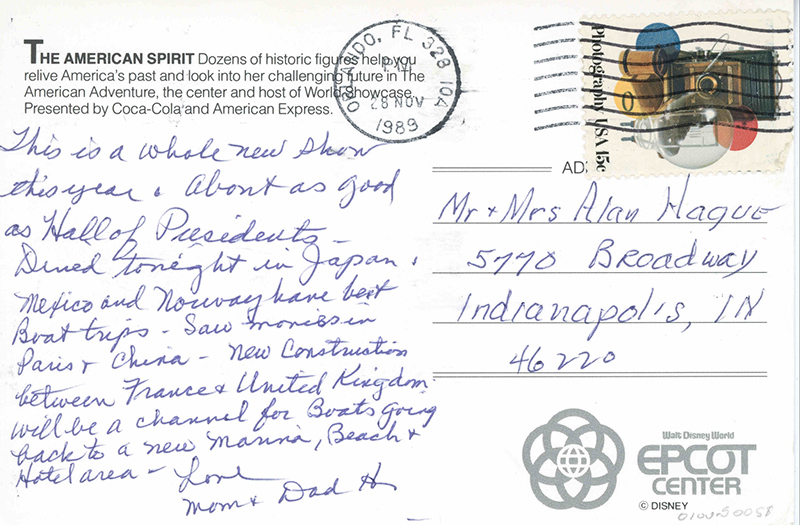 THE AMERICAN SPIRIT Dozens of historic figures help you
relive America's past and look into her challenging future in The
American Adventure, the center and host of World Showcase.
Presented by Coca-Cola and American Express.
ORLANDO, FL 328 10A
PM
28 NOV
1989
Photography USA 15c
This is a whole new show
this year. About as good
as Hall of Presidents -
Dined tonight in Japan.
Mexico and Norway have best
Boat trips - Saw movies in
Paris & China - New Construction
between France & United Kingdom
will be a channel for Boats going
back to a new Marina, Beach &
Hotel area - Love
Mom & Dad H
AD
Mr & Mrs Alan Hague
5770 Broadway
Indianapolis, IN
46220
Walt Disney World
EPCOT
CENTER
© DISNEY